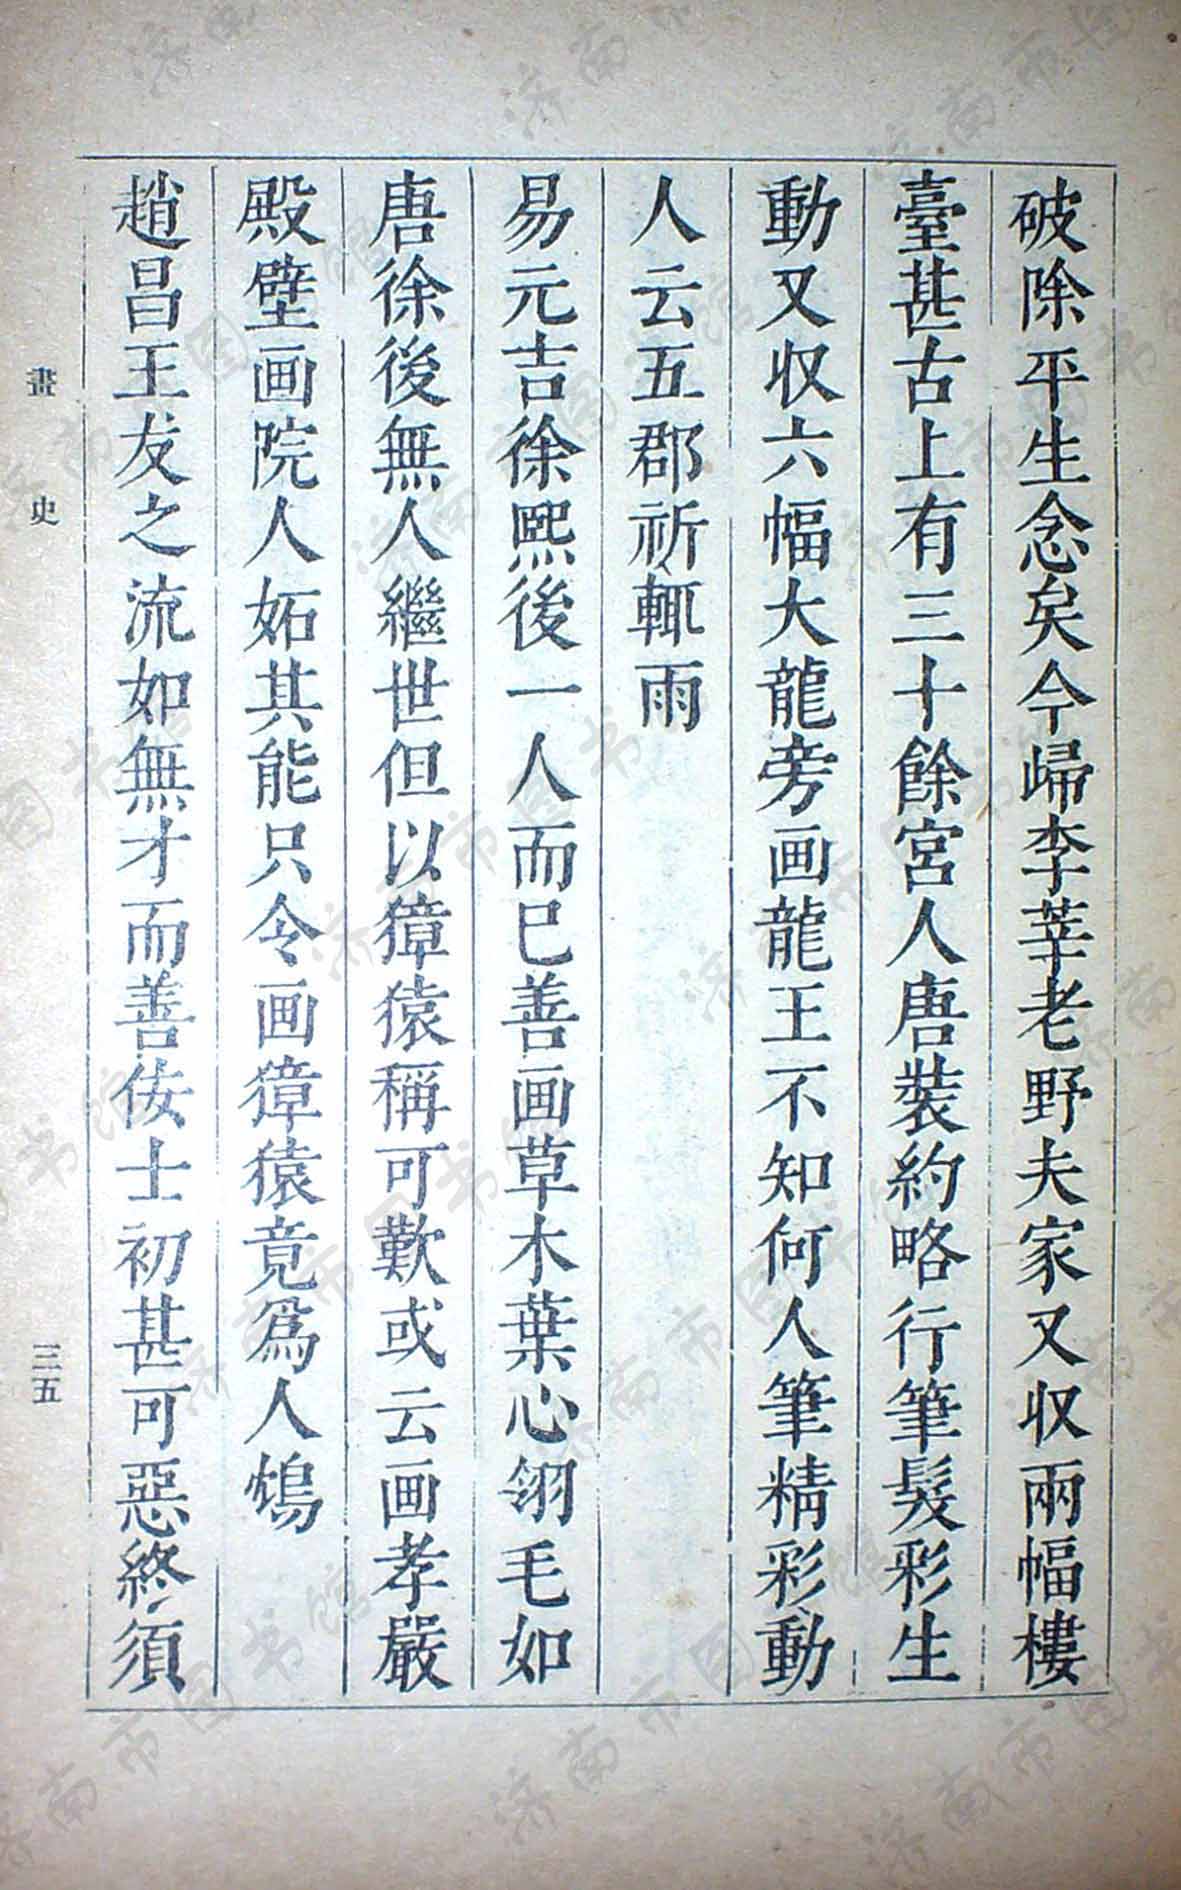 破除平生念矣今歸李莘老野夫家又収兩幅樓
臺甚古上有三十餘宮人唐裝約略行筆髮彩生
動又収六幅大龍旁画龍王不知何人筆精彩動
人云五郡祈輒雨
易元吉徐熙後一人而已善画草木葉心翎毛如
唐徐後無人繼世但以獐猿稱可歎或云画孝嚴
殿壁画院人妬其能只令画獐猿竟爲人鴆
趙昌王友之流如無才而善佞士初甚可惡終須
畫史
三五
济南市图书馆